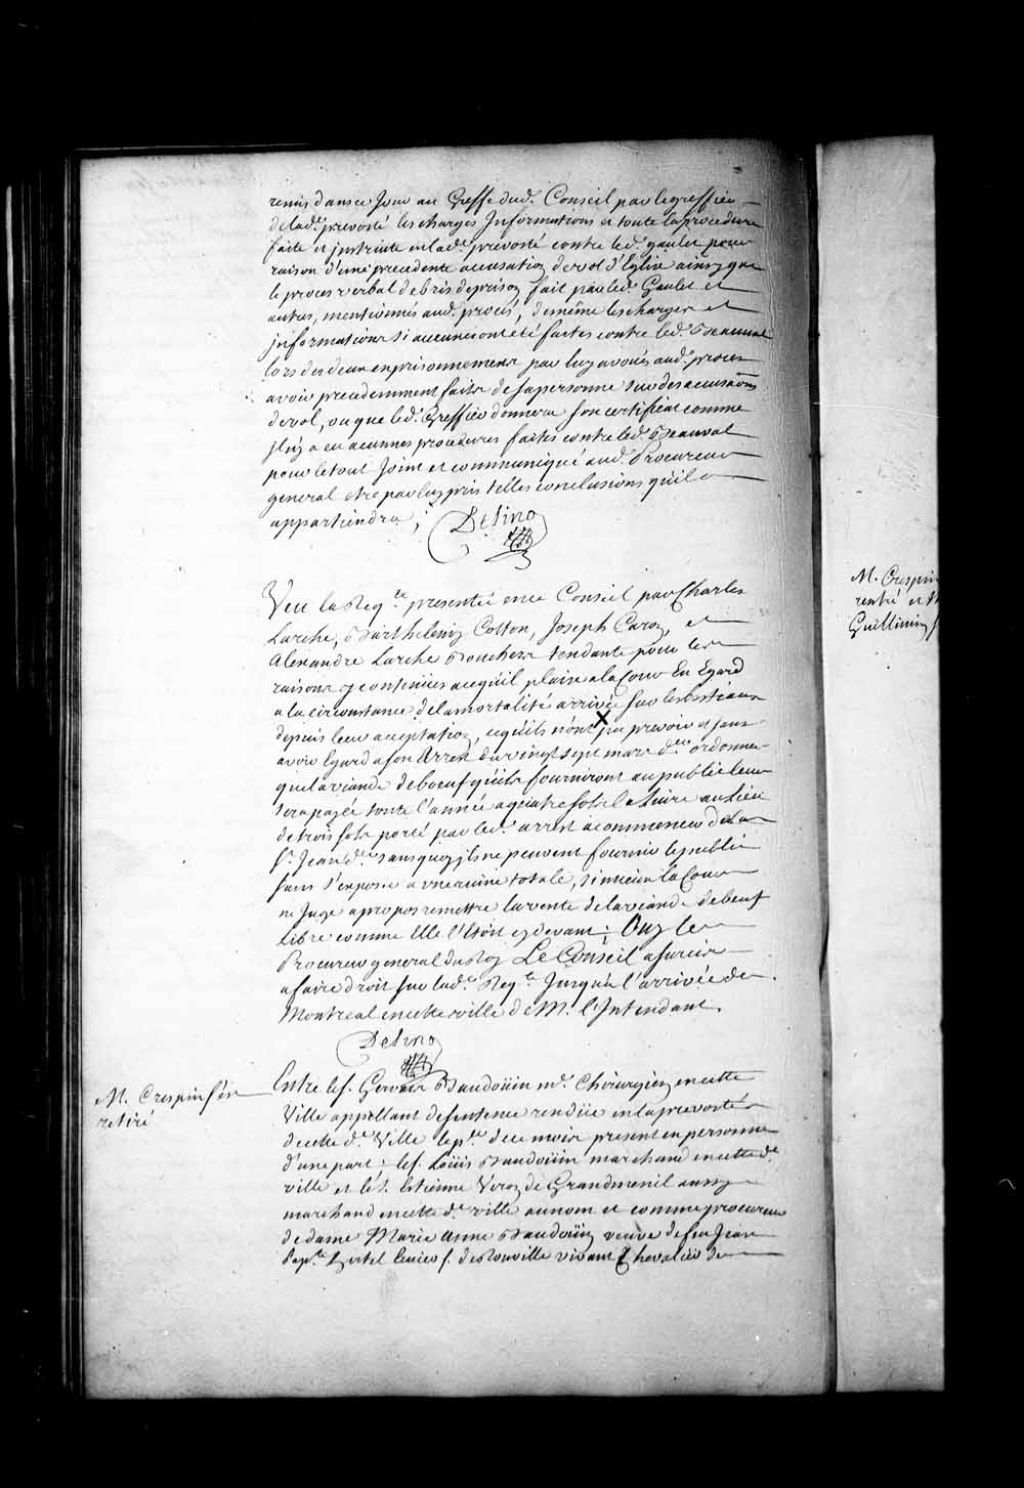 remis dans ce Jour au Greffe dud. Conseil par le greffier
de lad.e prevosté les charges Informations et toute la procedure
faite et instruite en lad.e prevosté contre led. gaulet pour
raison d'une precedente accusation de vol d'Eglise ainsy que
le proces verbal de bris de prison fait par led. Gaulet et
autres, mentionnés aud. procès, de même les charges et
informations si aucunes ont été faites contre led. Beauval
lors des deux emprisonnemens par luy avoués aud. proces
avoir precedemment faits de sa personne sur des accusaõns
de vol, ou que led. Greffier donnera son certificat comme
il n'y a eu aucunes procedures faites contre led. Beauval
pour le tout Joint et communiqué aud. Procureur
general etre par luy pris telles conclusions qu'il
appartiendra;
Delino
Veu la Req.te presentée en ce Conseil par Charles
Larche, Barthelemy Cotton, Joseph Caron et
Alexandre Larche Bouchers tendante pour les
raisons y contenües a ce qu'il plaise a la Cour En Egard
a la circonstance de la mortalité arrivée sur les bestiaux
depuis leur acceptation, ce qu'ils n'ont pu prevoir et sans
avoir Egard a son Arrest du vingt sept mars d.er ordonner
que la viande de boeuf qu'ils fourniront au public leur
sera payée toute l'année a quatre sols la livre au lieu
de trois sols porté par led. arrest a commencer de la
S.t Jean d.re sans quoy ils ne peuvent fournir le public
sans s'exposer a une ruine totale, si mieux la Cour
ne Juge a propos remettre la vente de la viande de beuf
libre comme Elle l'Etoit cy devant; Ouy le
Procureur general du Roy Le Conseil a surcis
a faire droit sur lad.e Req.te Jusqu'a l'arrivée de
Montreal en cette ville de M.r l'Intendant.
Delino
M. Crespin s'en
retiré
Entre le s.r Gervais Baudoüin m.e Chirurgien en cette
Ville appellant de sentence rendüe en la prevosté
de cette d.e Ville le p.er de ce mois present en personne
d'une part; le s.r Loüis Baudoüin marchand en cette d.e
ville et le s.r Estienne Veron de Grandmenil aussy
marchand en cette d.e ville au nom et comme procureur
de dame Marie Anne Baudoüin veuve de feu Jean
Bap.te Hertel Ecuier s.r de Rouville vivant Chevalier de
M. Crespin
rentré et
Guillimin